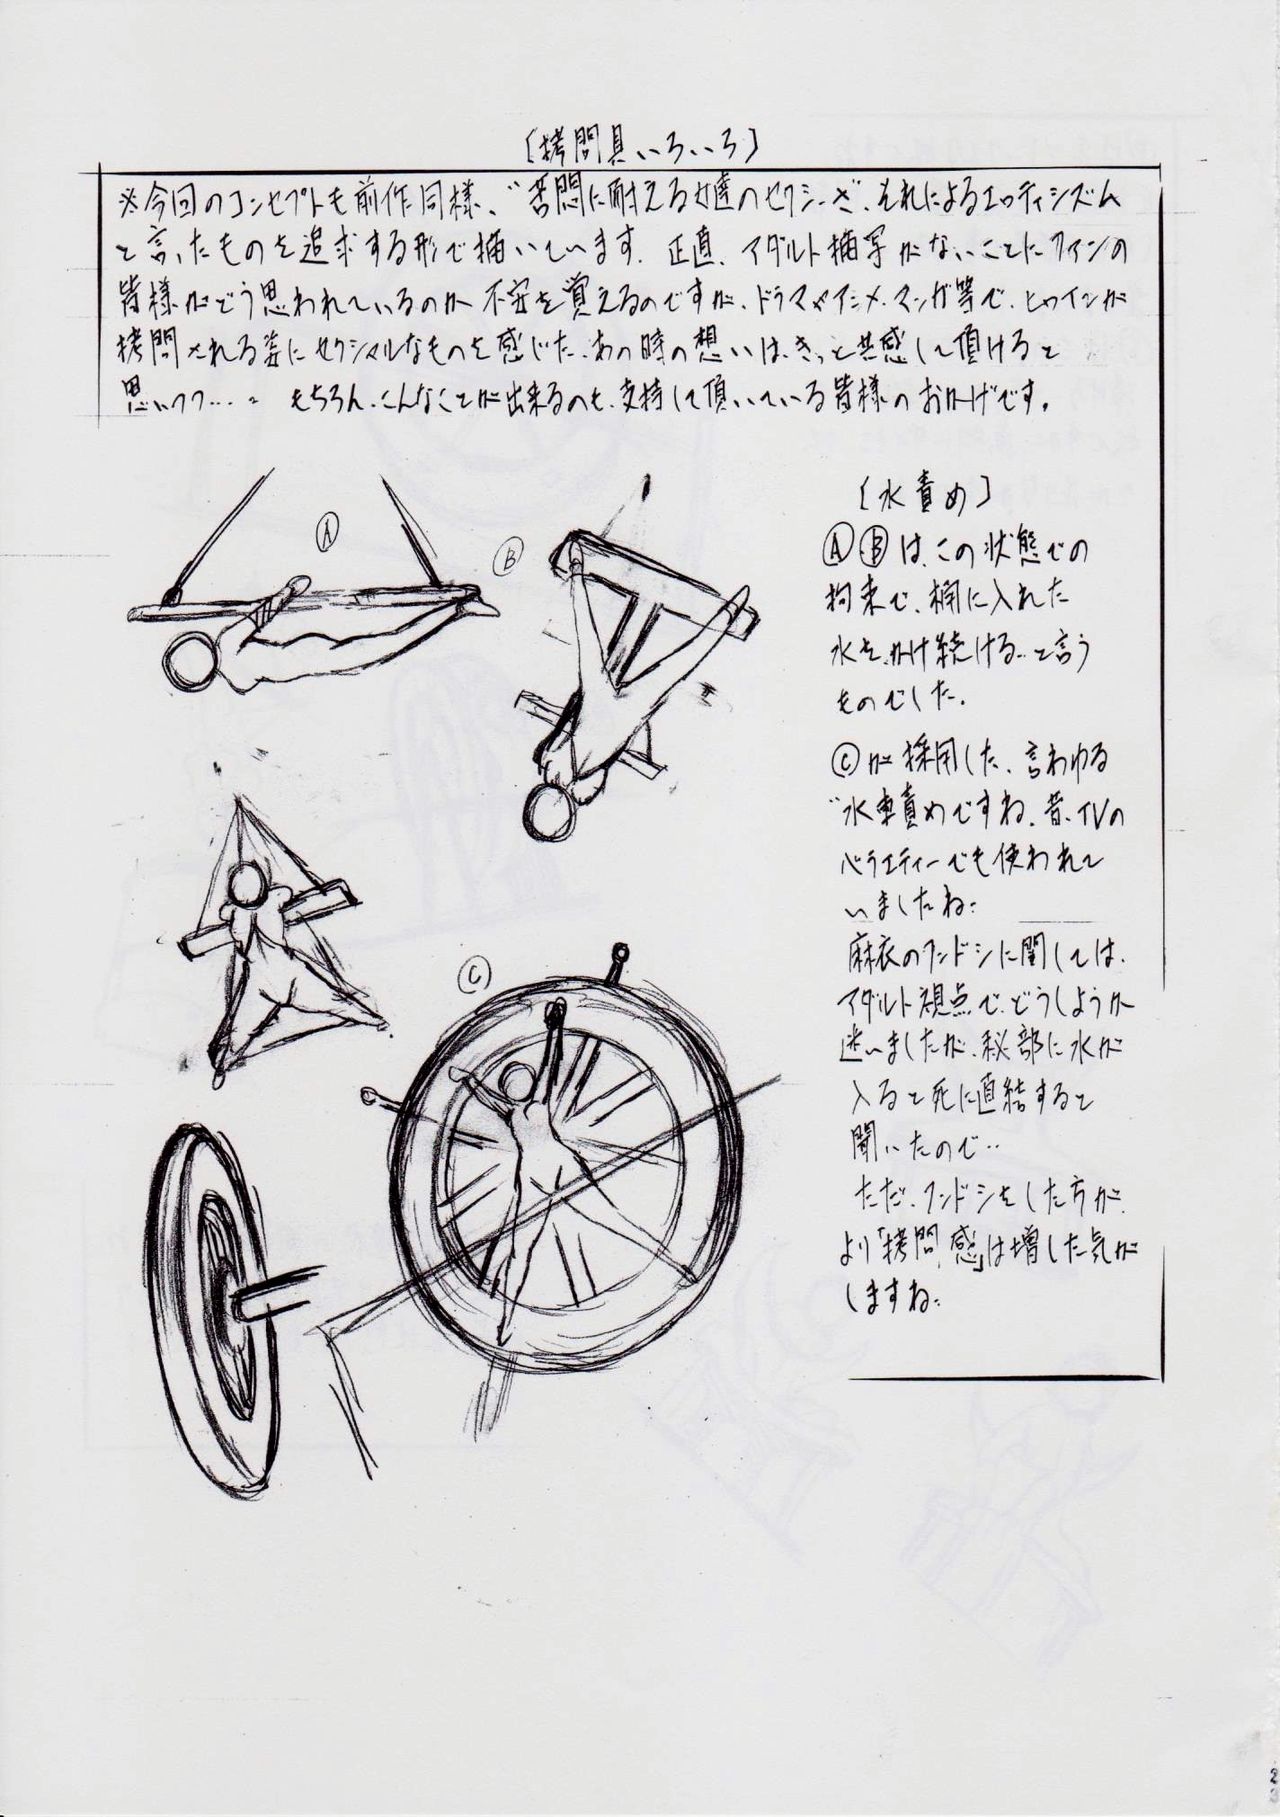 〔拷問具いろいろ〕
※今回のコンセプトも前作同様、"苦悶に耐える女達のセクシーさ、それによるエロティシズム
と言ったものを追求する形で描いています。正直、アダルト描写がないことにファンの
皆様がどう思われているのか不安を覚えるのですが、ドラマやアニメ、マンガ等で、ヒロインが
拷問される姿にセクシャルなものを感じた、あの時の想いは、きっと共感して頂けると
思いつつ…。もちろん、こんなことが出来るのも、支持して頂いている皆様のおかげです。
Ⓐ
Ⓑ
Ⓒ
〔水責め〕
ⒶⒷは、この状態での
拘束で、桶に入れた
水を、かけ続ける…と言う
ものでした。
Ⓒが採用した、言わゆる
"水車責めですね、昔、TVの
バラエティーでも使われて
いましたね…
麻衣のフンドシに関しては、
アダルト視点で、どうしようか
迷いましたが、秘部に水が
入ると死に直結すると
聞いたので…
ただ、フンドシをした方が、
より「拷問感」は増した気が
しますね…